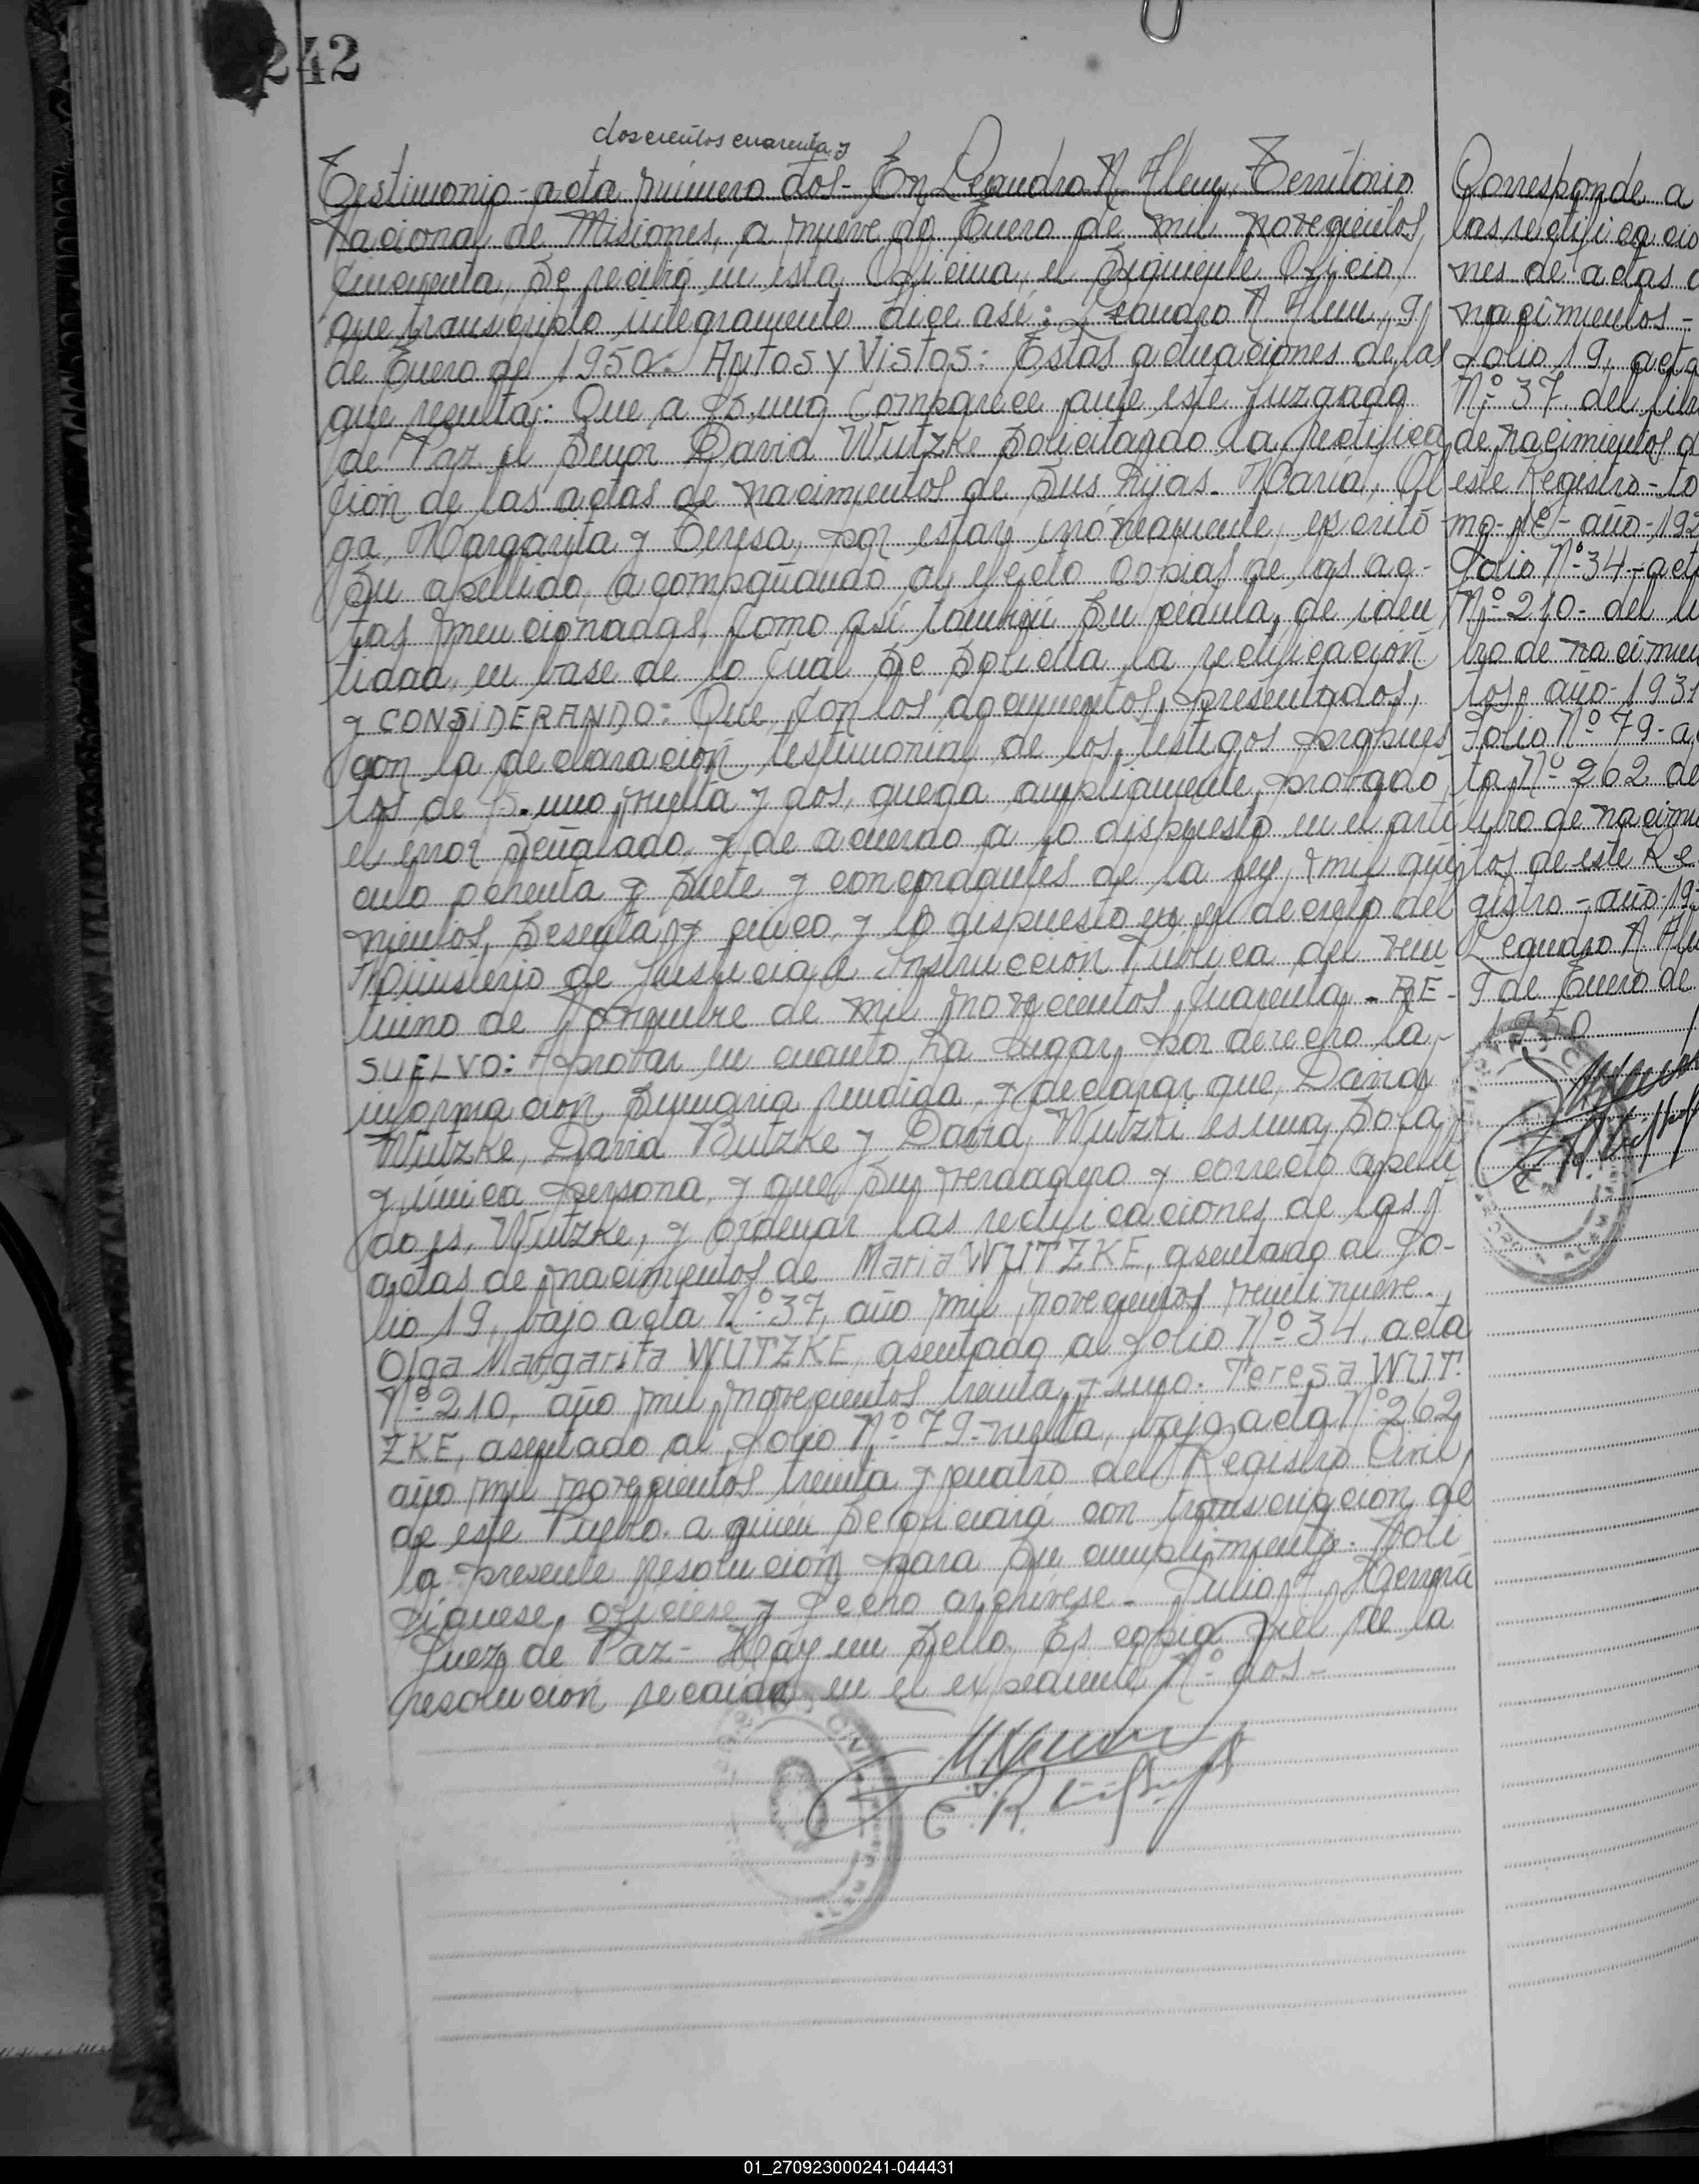 242
doscientos cuarenta y
Testimonio-acta número dos- En Leandro N. Alem, Territorio
Nacional de Misiones, a nueve de Enero de mil novecientos
cincuenta, se recibió en esta Oficina, el siguiente Oficio,
que transcripto integramente dice así: Leandro N. Alem, 9
de Enero de 1950.- Autos y Vistos: Estas actuaciones de las
que resulta: Que a fs. uno comparece ante este Juzgado
de Paz el Señor David Wutzke solicitando la rectifica
ción de las actas de nacimientos de sus hijas. María, Ol
ga, Margarita y Teresa, por estar erróneamente escrito
su apellido, acompañando al efecto copias de las ac-
tas mencionadas, como así también su cédula de iden
tidad, en base de lo cual se solicita la rectificación
y CONSIDERANDO: Que, con los documentos presentados,
con la declaración testimonial de los testigos propues
tos de fs. uno vuelta y dos, queda ampliamente probado
el error señalado, y de acuerdo a lo dispuesto en el artí
culo ochenta y siete y concordantes de la ley, mil qui
nientos sesenta y cinco, y lo dispuesto en el decreto del
Ministerio de Justicia e Instrucción Pública del
de mil novecientos cuarenta.- RE-
SUELVO: Aprobar en cuanto ha lugar por derecho la
información sumaria rendida, y declarar que, David
Wutzke, David Butzke y David Wutzki es una sola
y única persona, y que su verdadero y correcto apelli
do es, Wutzke, y ordenar las rectificaciones de las
actas de nacimientos de Maria WUTZKE, asentado al fo-
lio 19, bajo acta N.º 37, año mil novecientos veintinueve.,
Olga Margarita WUTZKE, asentado al folio Nº 34, acta
Nº 210, año mil novecientos treinta y uno. Teresa WUT.
ZKE, asentado al folio Nº 79-vuelta, bajo acta Nº 262
año mil novecientos treinta y cuatro del Registro Civil
de este Pueblo. a quién se oficiará con transcripción de
la presente resolución para su cumplimiento. Noti
fíquese, ofíciese y fecho archívese.- Julio A.
Juez de Paz- Hay un sello. Es copia fiel de la
resolución recaída en el expediente Nº dos-
Corresponde a
las rectificacio
nes de actas d
nacimientos-
Folio 19, acta
Nº 37. del libr
de nacimientos d
este Registro-to
mo-1º- año-192
Folio Nº 34-act
Nº 210- del li
bro de nacimien
tos, año-1931
Folio Nº 79-a
ta Nº 262 de
libro de nacimi
tos de este Re
gistro-año-19
Leandro N. Ale
9 de Enero de
1950
01_270923000241-044431